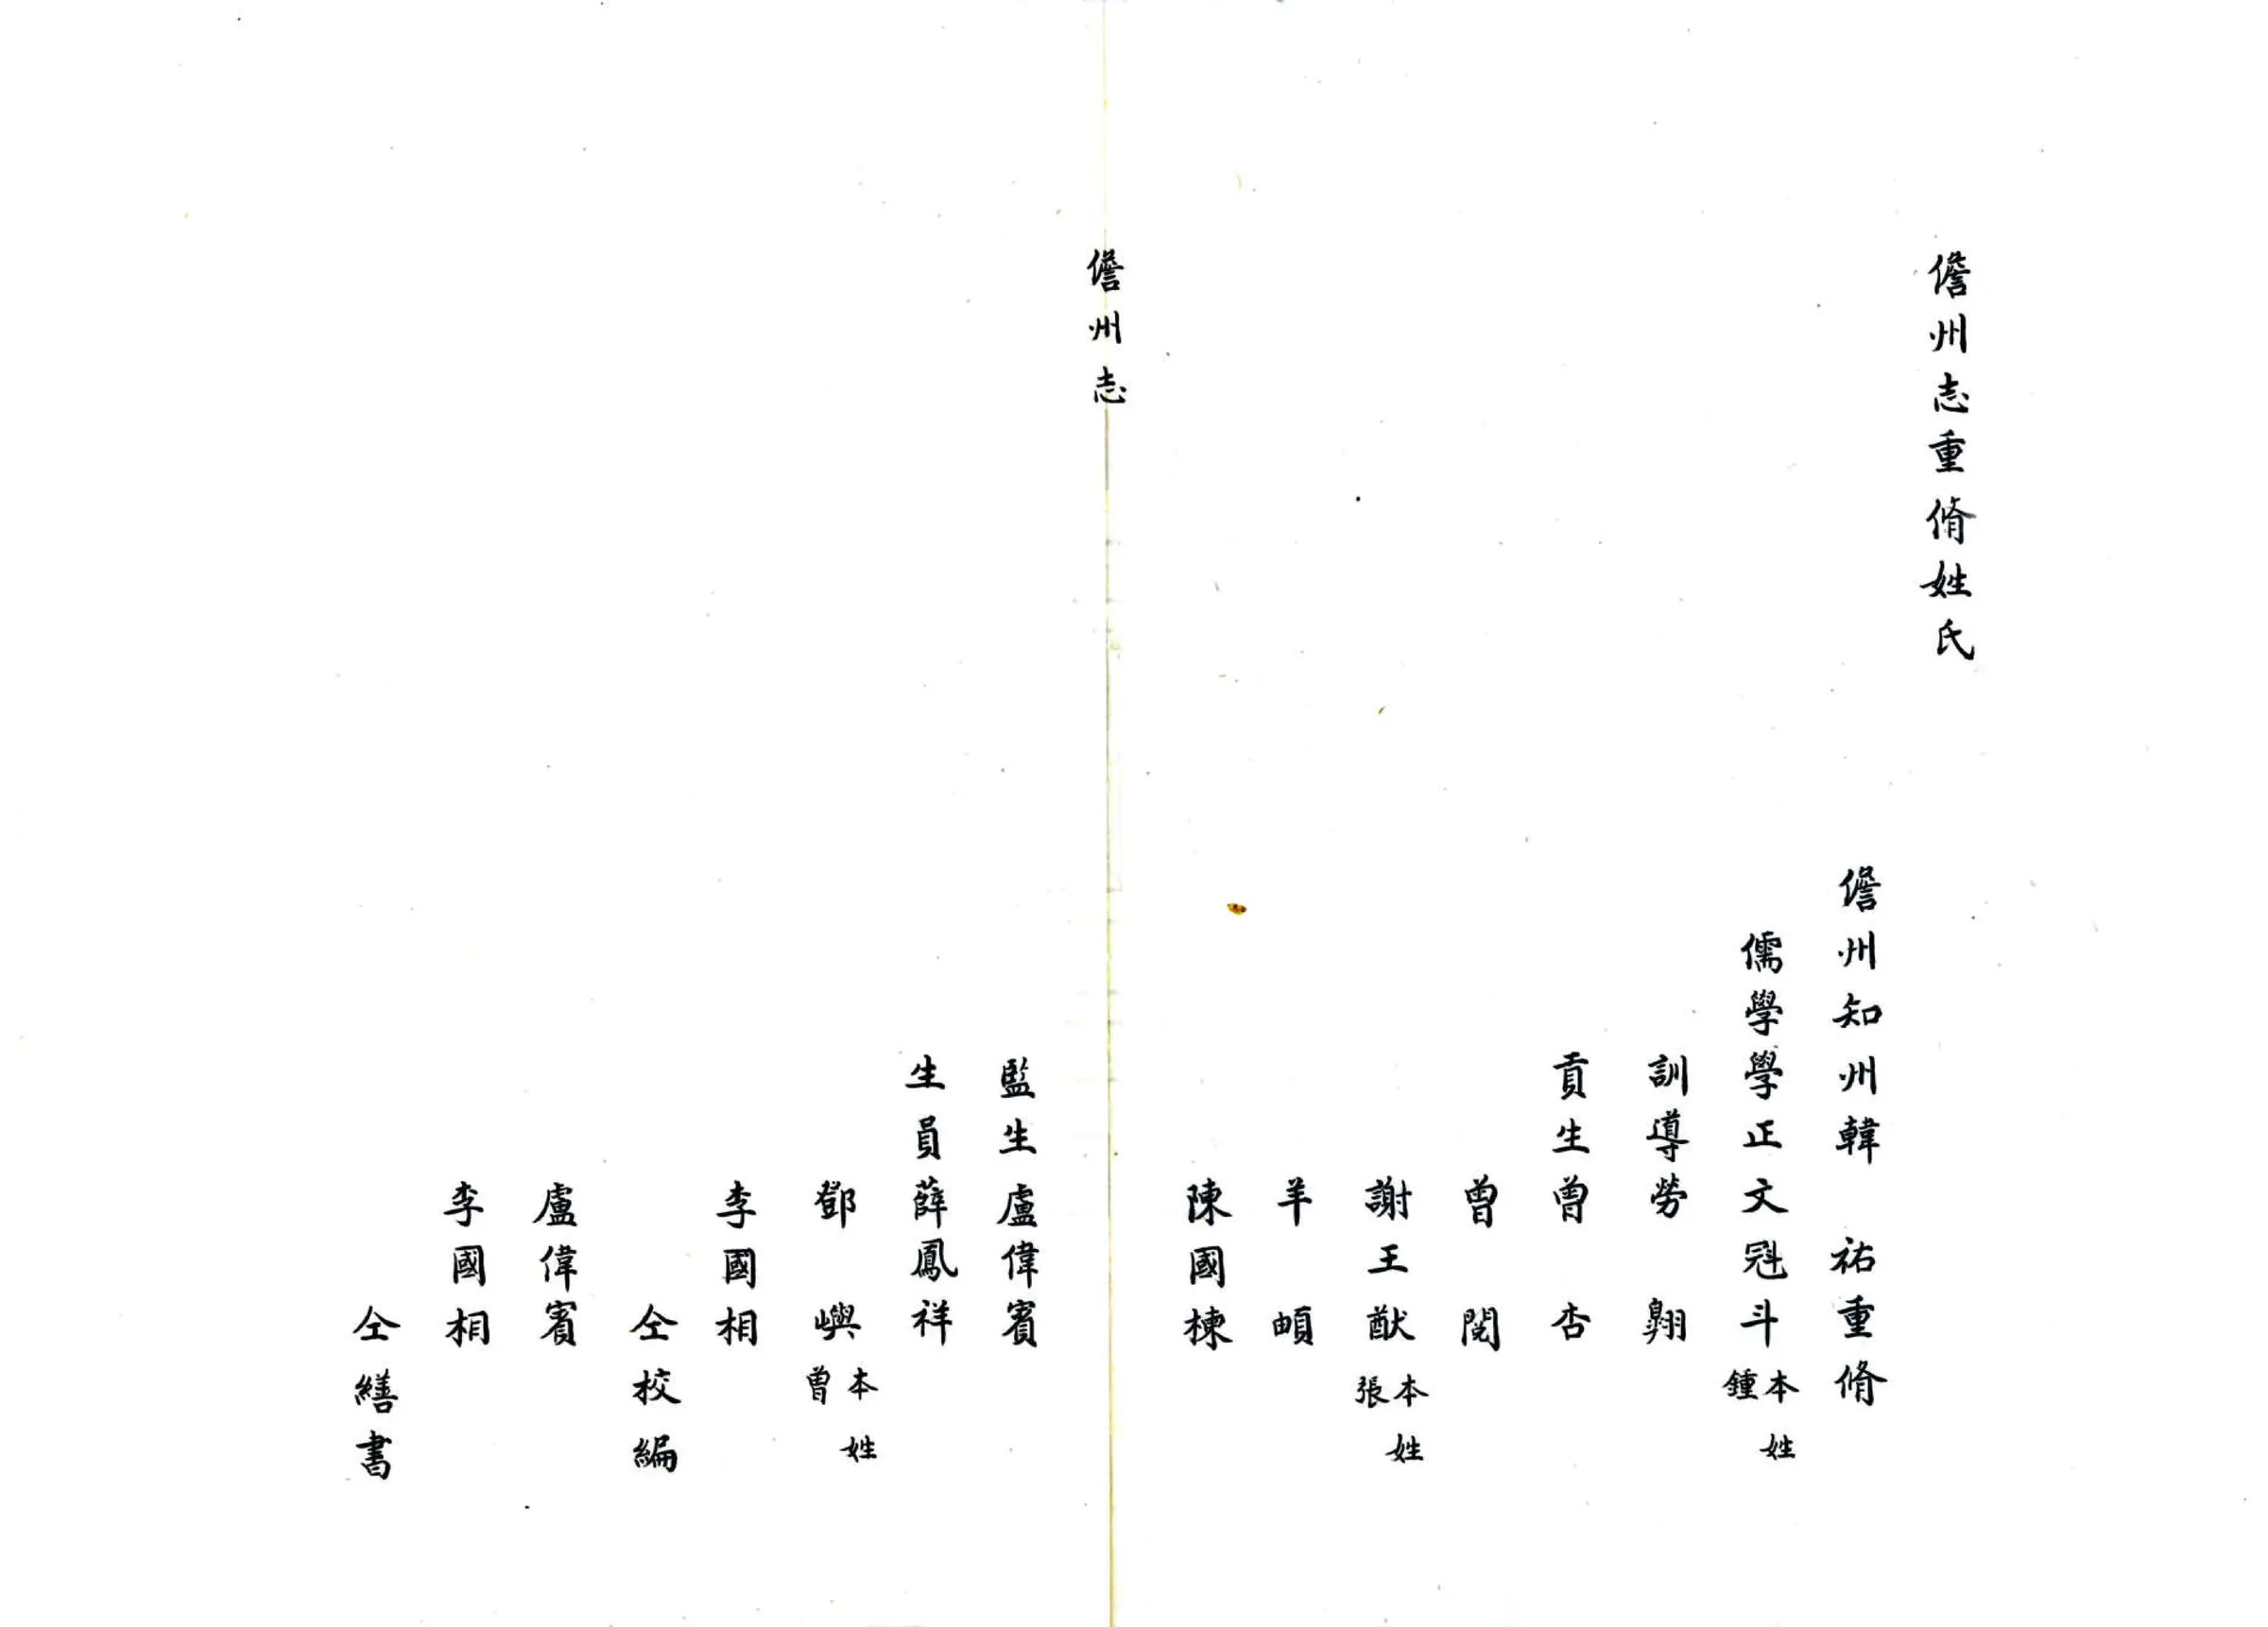 儋州志重脩姓氏
儋州知州韓 祐重脩
儒學學正文冠斗本姓鍾
訓導勞 翺
貢生曾 杏
曾 閱
謝王猷本姓張
羊 𩒨
陳國棟
儋州志
監生盧偉賓
生員薛鳳祥
鄧 嶼本姓曾
李國相
仝校編
盧偉賓
李國相
仝繕書